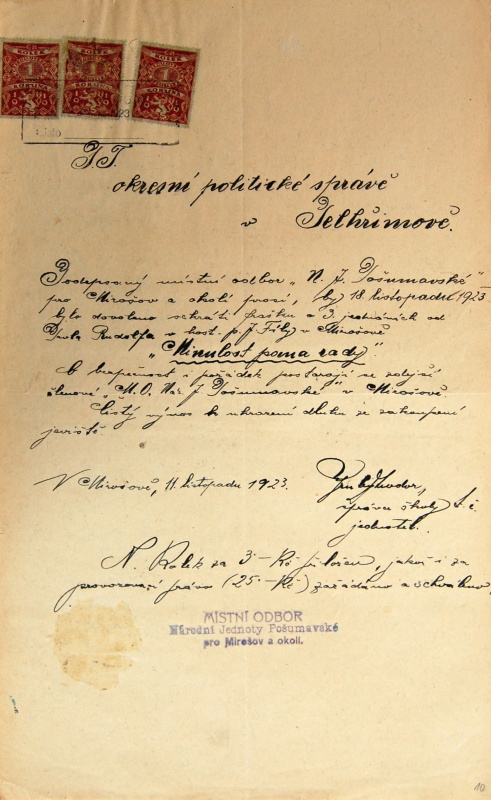 ČR
KOLEK
1
KORUNA
KOLEK
1
KORUNA
KOLEK
1
KORUNA
23
okresní politické správě
v Pelhřimově.
Podepsaný místní odbor „N. J. Pošumavské"
pro Mirošov a okolí prosí, by 18. listopadu 1923
bylo dovoleno sehráti frašku o 3 jednáních od
Rudolfa v host. p. J. v Mirošově
„Minulost pana rady".
O bezpečnost i pořádek postarají se zdejší
členové „M. O. Nár. J. Pošumavské" v Mirošově.
Čistý výnos k uhrazení dluhu ze zakoupení
jeviště.
V Mirošově, 11. listopadu 1923.
správce školy t. č.
jednatel.
N. Kolek za 3 Kč přiložen, jakož i za
provozovací právo (25 Kč) zažádáno a schváleno.
MÍSTNÍ ODBOR
Národní Jednoty Pošumavské
pro Mirešov a okolí.
10